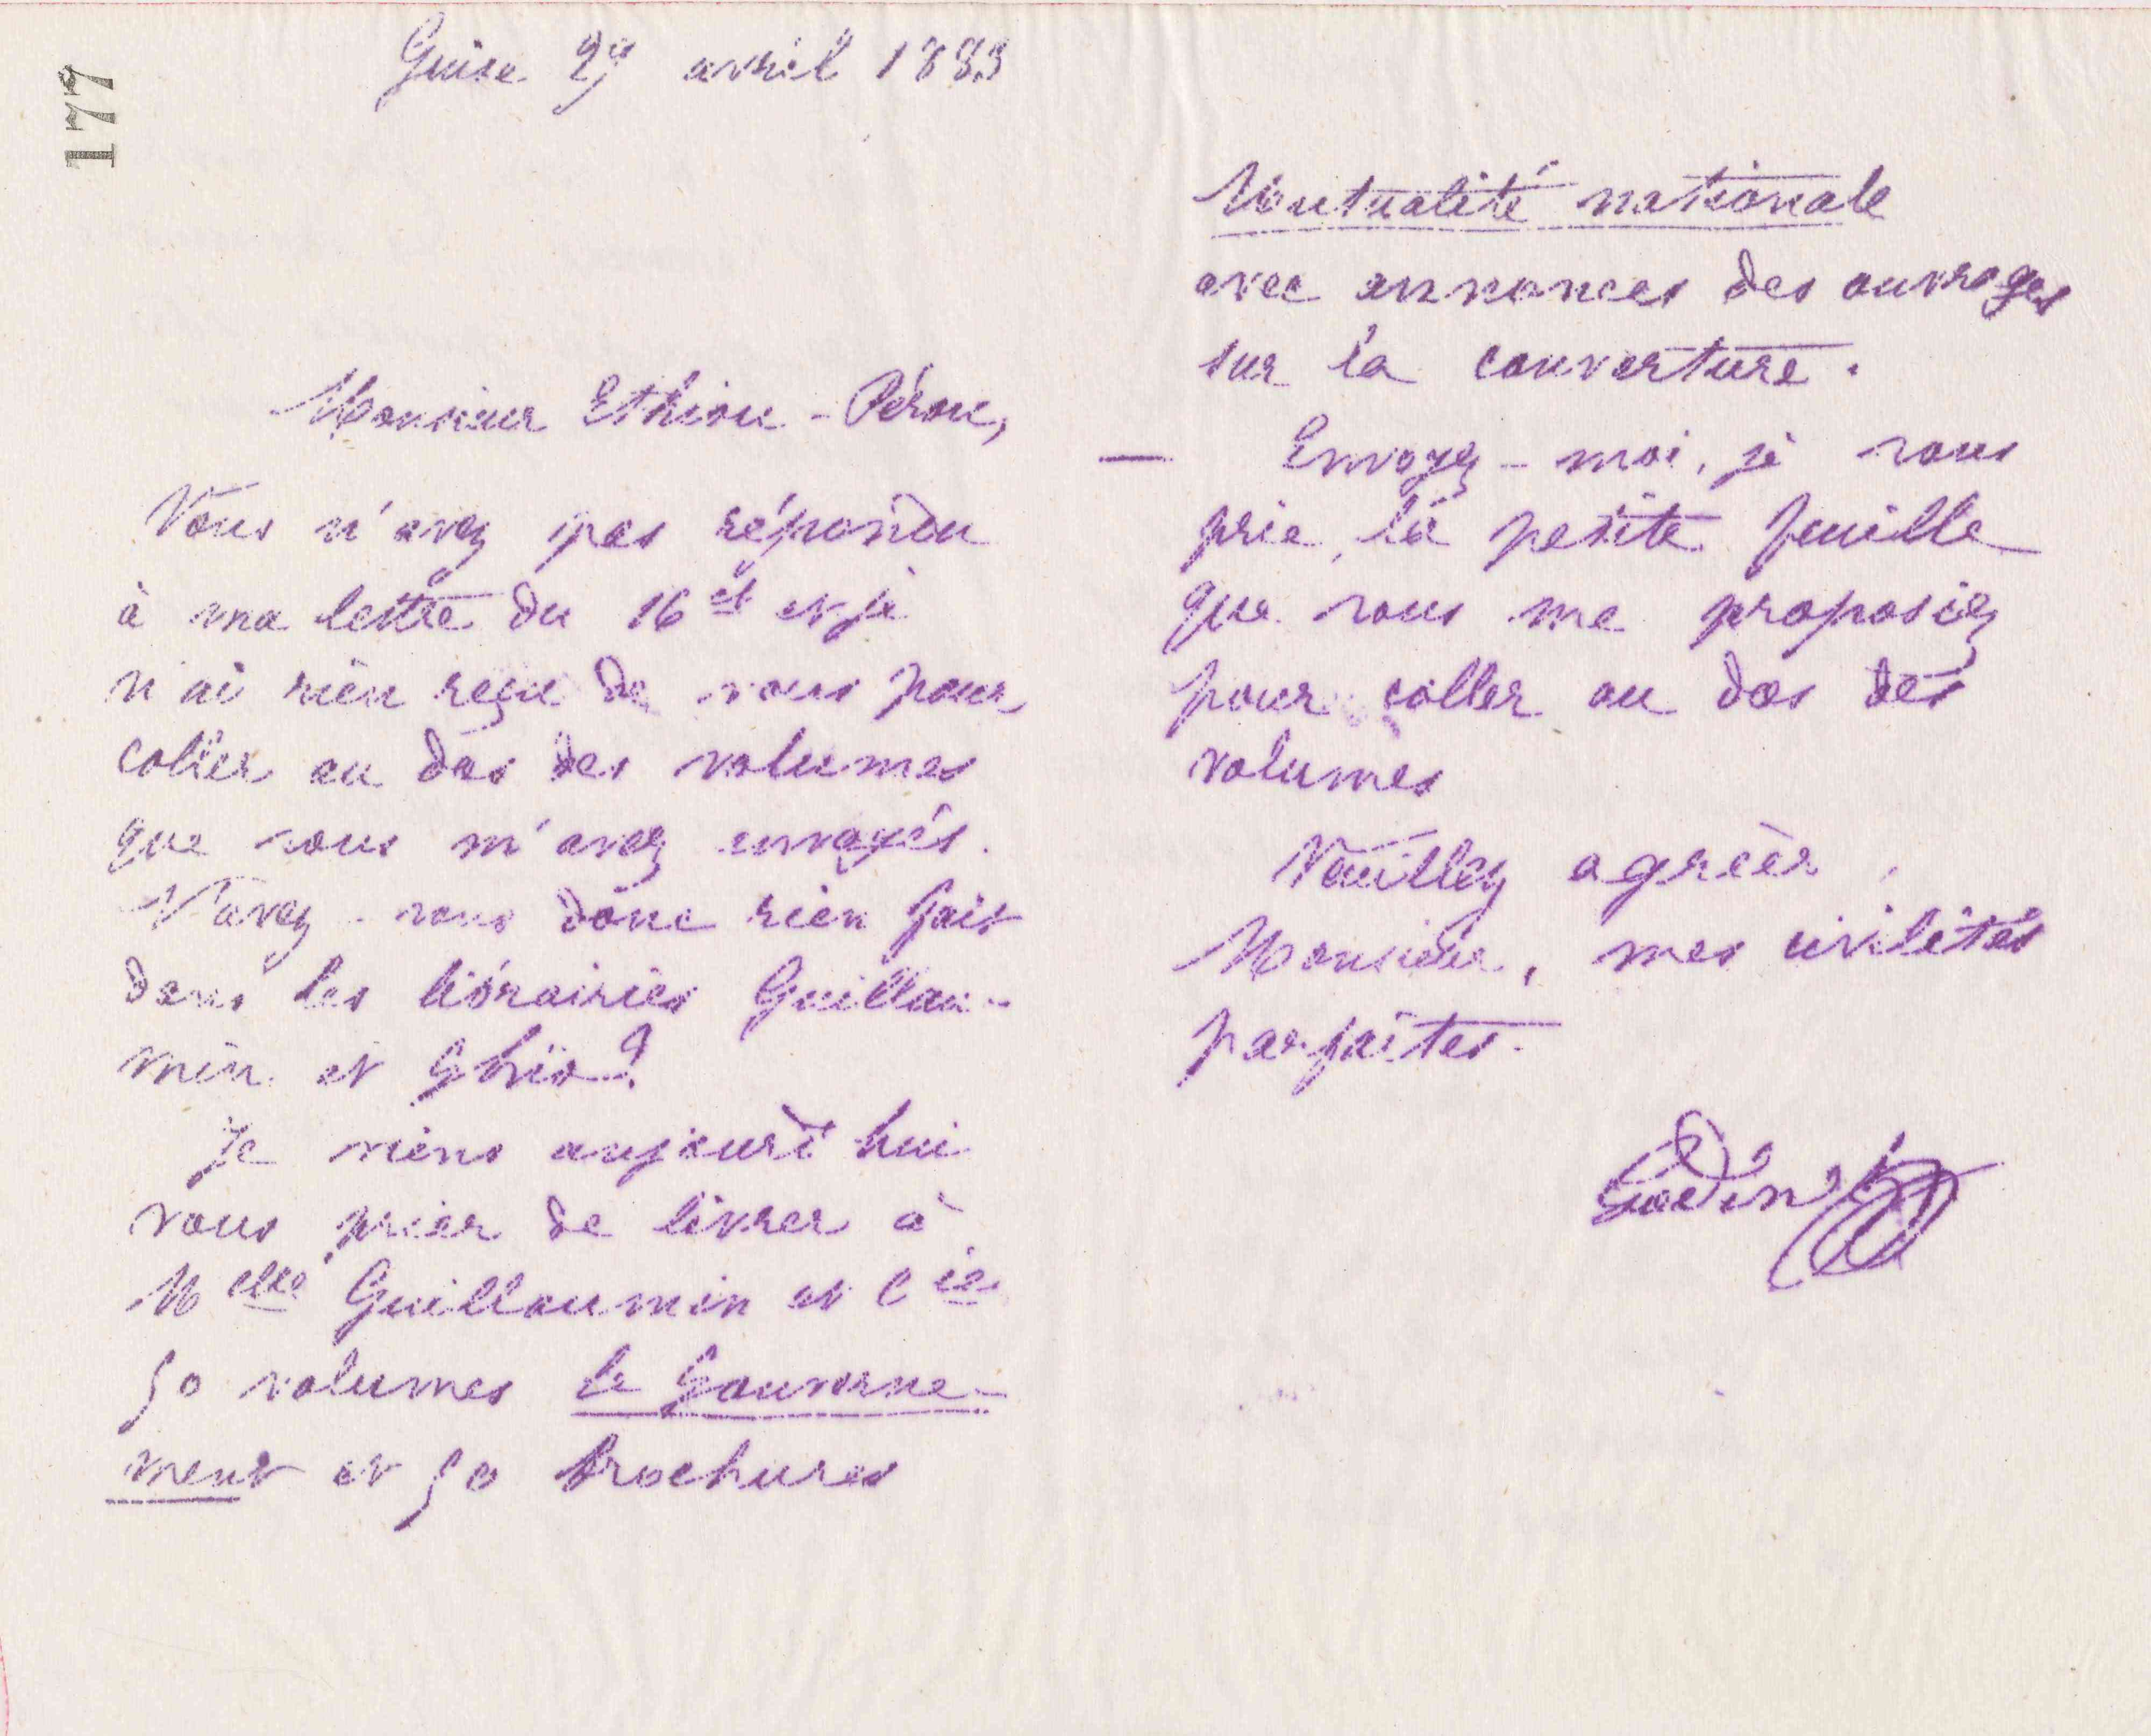 177
Guise 29 avril 1883
Monsieur Ethiou-Pérou,
Vous n'avez pas répondu
à ma lettre du 16 ct et je
n'ai rien reçu de vous pour
coller au dos des volumes
que vous m'avez envoyés.
N'avez-vous donc rien fait
dans les librairies Guillau-
min et Ghio ?
Je viens aujourd'hui
vous prier de livrer à
Melle Guillaumin et Cie
50 volumes le Gouverne-
ment et 50 brochures
Mutualité nationale
avec annonces des ouvrages
sur la couverture.
— Envoyez-moi, je vous
prie, la petite feuille
que vous me proposiez
pour coller au dos des
volumes
Veuillez agréer,
Monsieur, mes civilités
parfaites.
Godin